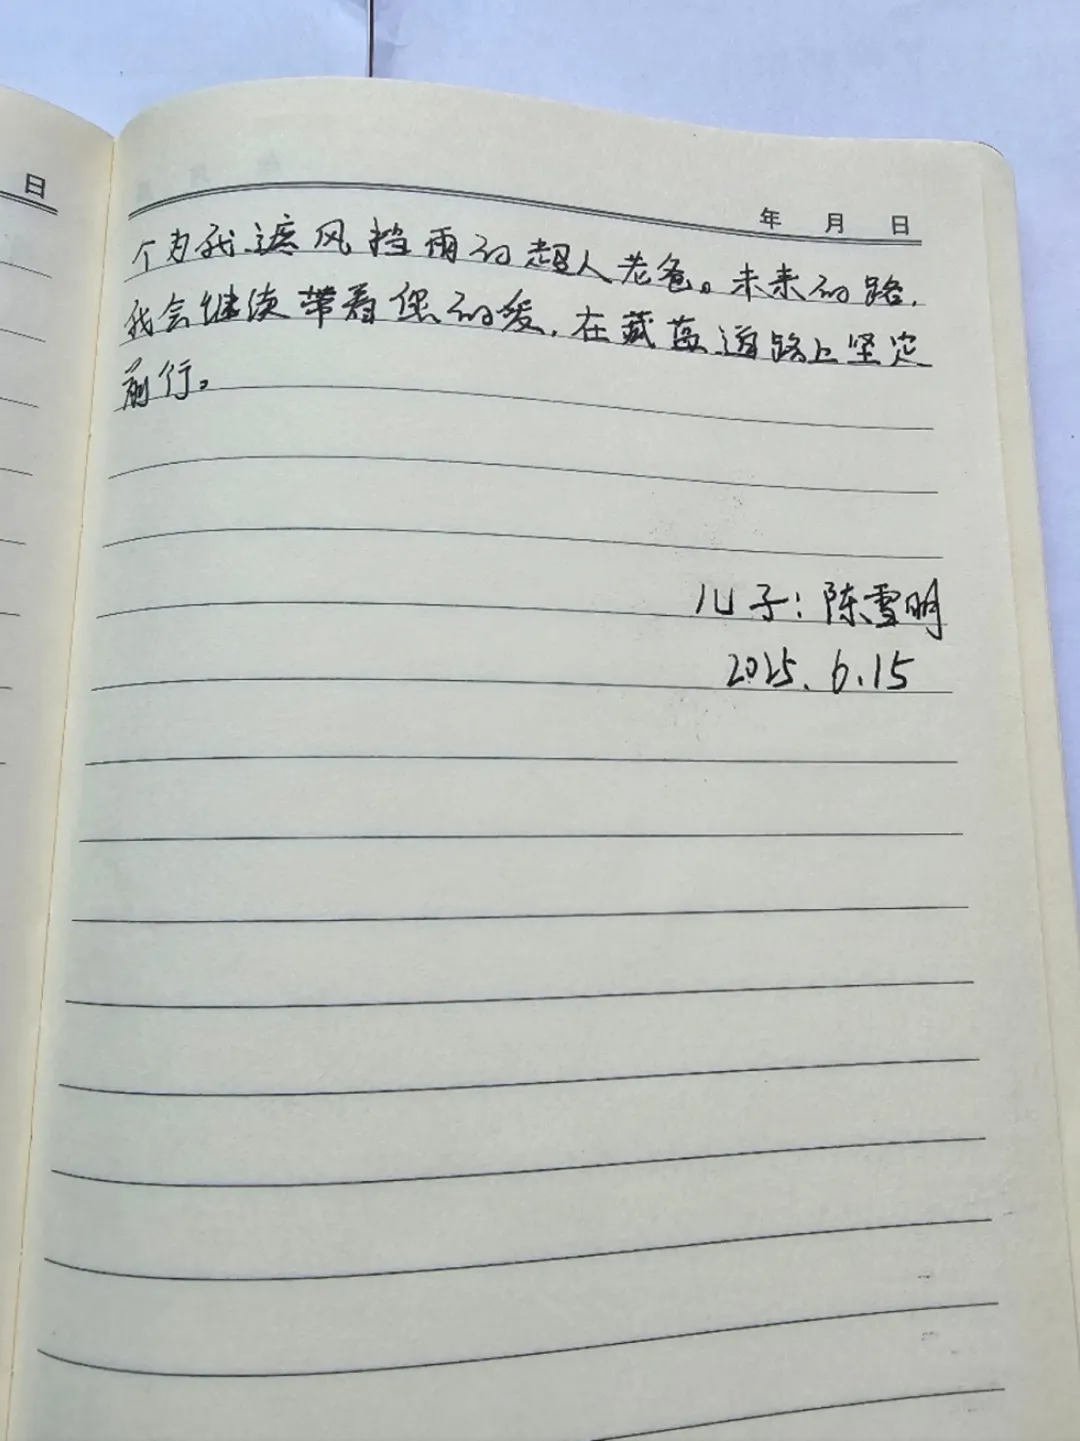 日
年 月 日
个为我遮风挡雨的超人老爸。未来的路，
我会继续带着您的爱，在藏蓝道路上坚定
前行。
儿子：陈雪明
2025.6.15